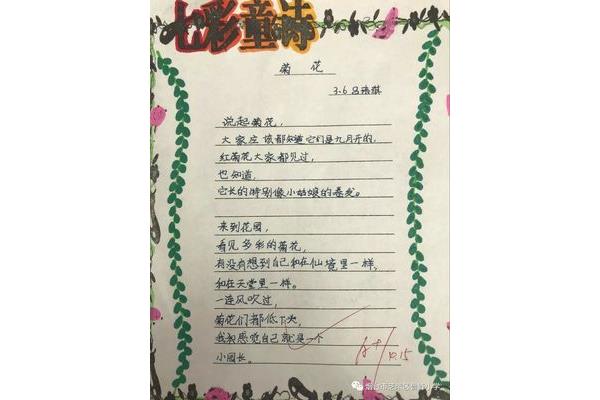 七彩童诗
菊花
3.6 吕
说起菊花，
大家应该都知道它们是九月开的，
红菊花大家都见过，
也知道，
它长的特别像小姑娘的卷发。
来到花园，
看见多彩的菊花，
有没有想到自己和在仙境里一样，
和在天堂里一样。
一连风吹过，
菊花们都低下头，
我初感觉自己就是一个
小园长。
A+
10.15
烟台市芝罘区 小学